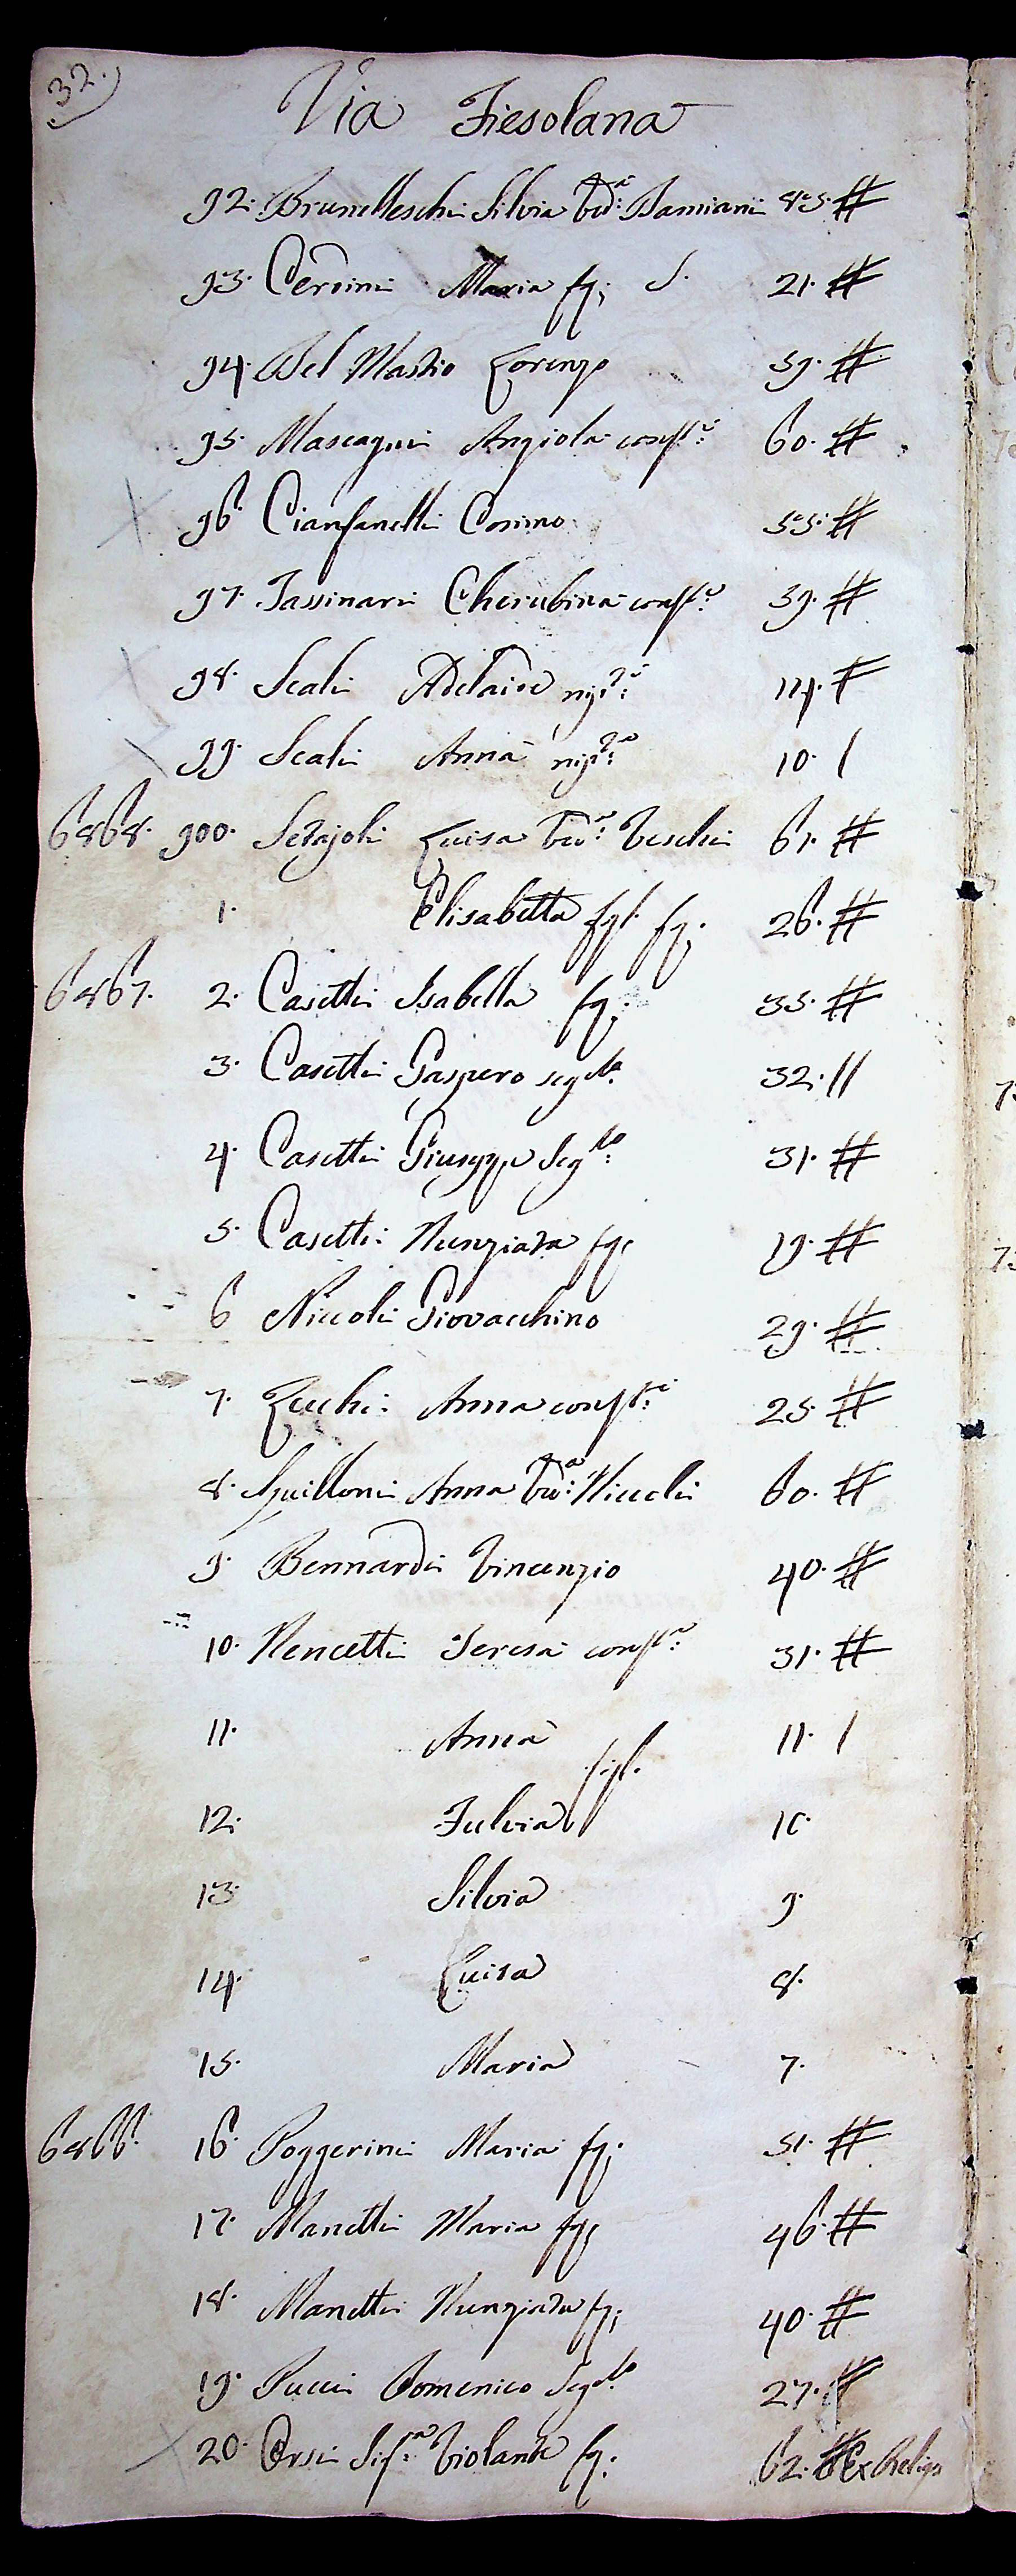 32.
Via Fiesolana
92. Brunelleschi Silvia Ved:ª Damiani 85. #
93. Cerdini Maria fg; S. 21. #
94. Del Mastio Lorenzo 59. #
95. Mascagni Angiola consr:ᵉ 60. #
96. Cianfanelli Cosimo 55. #
97. Fassinari Cherubina consr:ᵉ 39. #
98. Scali Adelaide nip:ᵉ 14. #
99. Scali Anna nip:ᵉ 10. /
6868. 900. Setajoli Luisa Ved:ª Veschi 61. #
1. Elisabetta fgl. fg. 26. #
6867. 2. Casetti Isabella fg; 35. #
3. Casetti Gaspero seg.lo 32. //
4. Casetti Giuseppe Seg:lo 31. #
5. Casetti Nunziata fg; 19. #
6 Niccoli Giovacchino 29. #
7. Zucchi Anna consr:ᵉ 25 #
8. Anna Ved:ª Niccoli 60. #
9. Bennardi Vincenzio 40. #
10. Nencetti Teresa consr:ᵉ 31. #
11. Anna 11. /
figl.
12. Fulvia 10.
13. Silvia 9.
14. Luisa 8.
15. Maria 7.
6866. 16. Poggerini Maria fg; 51. #
17. Manetti Maria fg; 46. #
18. Manetti Nunziata fg; 40. #
19. Pucci Domenico Seg.lo 27. #
20. Orsi Sig:ra Violante fg. 62. # Ex Religa